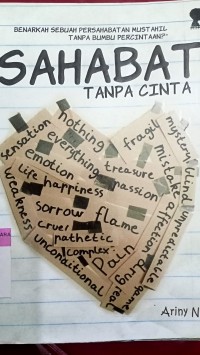 BENARKAH SEBUAH PERSAHABATAN MUSTAHIL
TANPA BUMBU PERCINTAAN?
SAHABAT
TANPA CINTA
nothing
fragile
mystery
sensation
everything
emotion
treasure
mistake
blind
life
happiness
passion
affection
unpredictable
weakness
sorrow
flame
cruel
pathetic
complex
Pain
unconditional
Ariny N